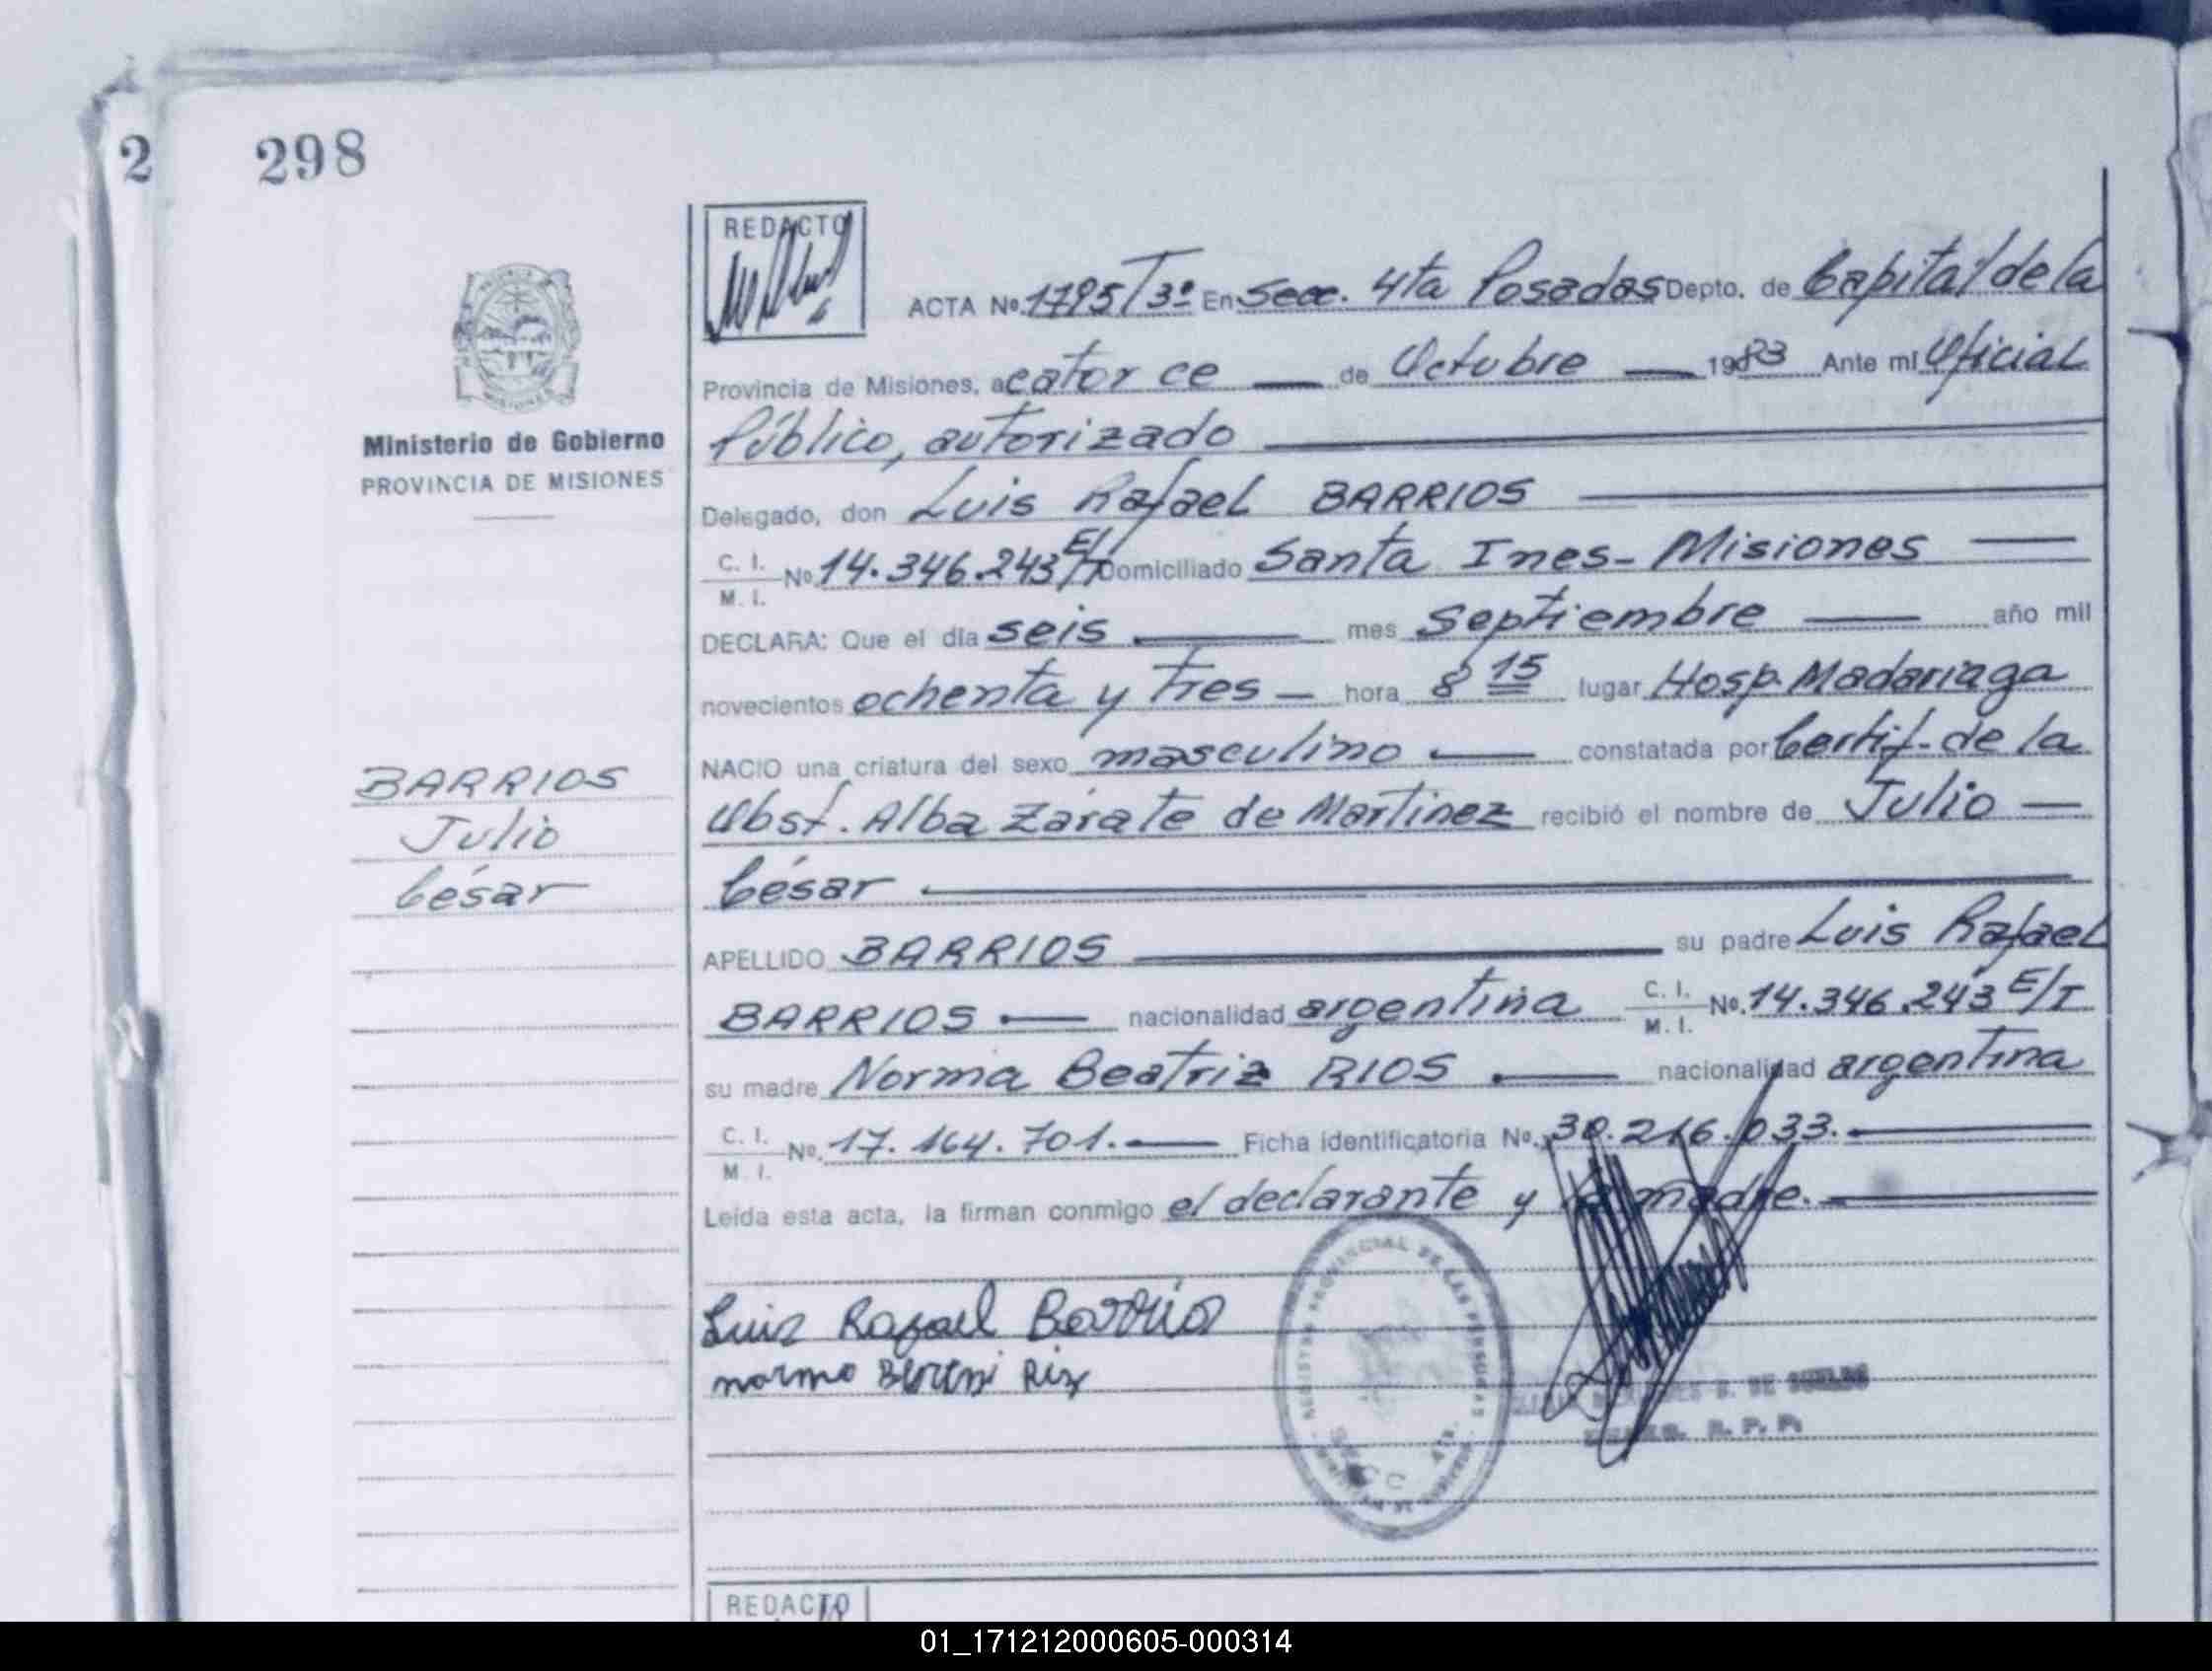 2
298
REDACTO
ACTA No. 1795/T3º En Secc. 4ta Posadas Depto. de Capital de la
Provincia de Misiones, a catorce — de Octubre — 1983 Ante mi Oficial
Público, autorizado
Ministerio de Gobierno
PROVINCIA DE MISIONES
Delegado, don Luis Rafael BARRIOS
C. I. M. I. No. 14.346.243 E/T Domiciliado Santa Ines - Misiones
DECLARA: Que el día seis — mes septiembre — año mil
novecientos ochenta y tres — hora 8 15 lugar Hosp. Madariaga
NACIO una criatura del sexo masculino — constatada por Certif. de la
Obst. Alba Zárate de Martinez recibió el nombre de Julio —
César
BARRIOS
Julio
César
APELLIDO BARRIOS — su padre Luis Rafael
BARRIOS — nacionalidad argentina C. I. M. I. No. 14.346.243 E/T
su madre Norma Beatriz RIOS — nacionalidad argentina
C. I. M. I. No. 17.164.701. — Ficha identificatoria No. 30.216.033. —
Leída esta acta, la firman conmigo el declarante y la madre. —
Luis Rafael Barrios
REGISTRO PROVINCIAL DE LAS PERSONAS
SECC 4TA.
R. P. P.
REDACTO
01_171212000605-000314